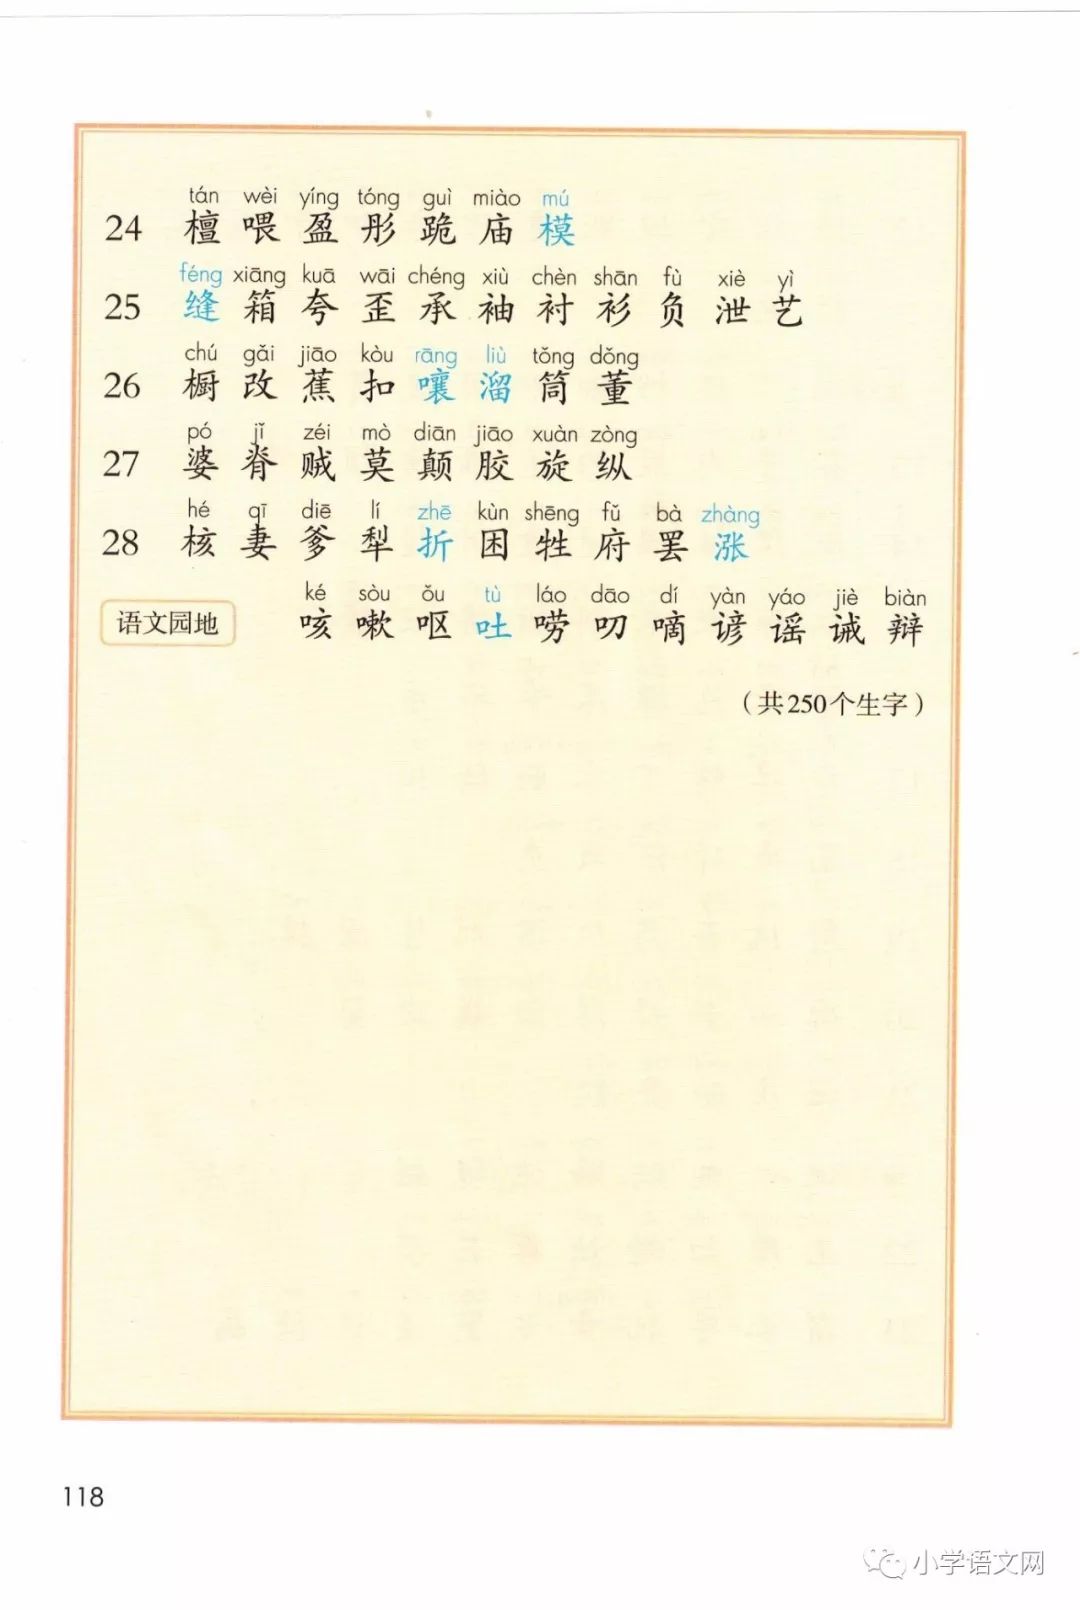 tán wèi yíng tóng guì miào mú
24 檀 喂 盈 彤 跪 庙 模
féng xiāng kuā wāi chéng xiù chèn shān fù xiè yì
25 缝 箱 夸 歪 承 袖 衬 衫 负 泄 艺
chú gǎi jiāo kòu rāng liù tǒng dǒng
26 橱 改 蕉 扣 嚷 溜 筒 董
pó jǐ zéi mò diān jiāo xuàn zòng
27 婆 脊 贼 莫 颠 胶 旋 纵
hé qī diē lí zhē kùn shēng fǔ bà zhàng
28 核 妻 爹 犁 折 困 牲 府 罢 涨
ké sòu ǒu tù láo dāo dí yàn yáo jiè biàn
语文园地 咳 嗽 呕 吐 唠 叨 嘀 谚 谣 诫 辩
（共250个生字）
118
小学语文网